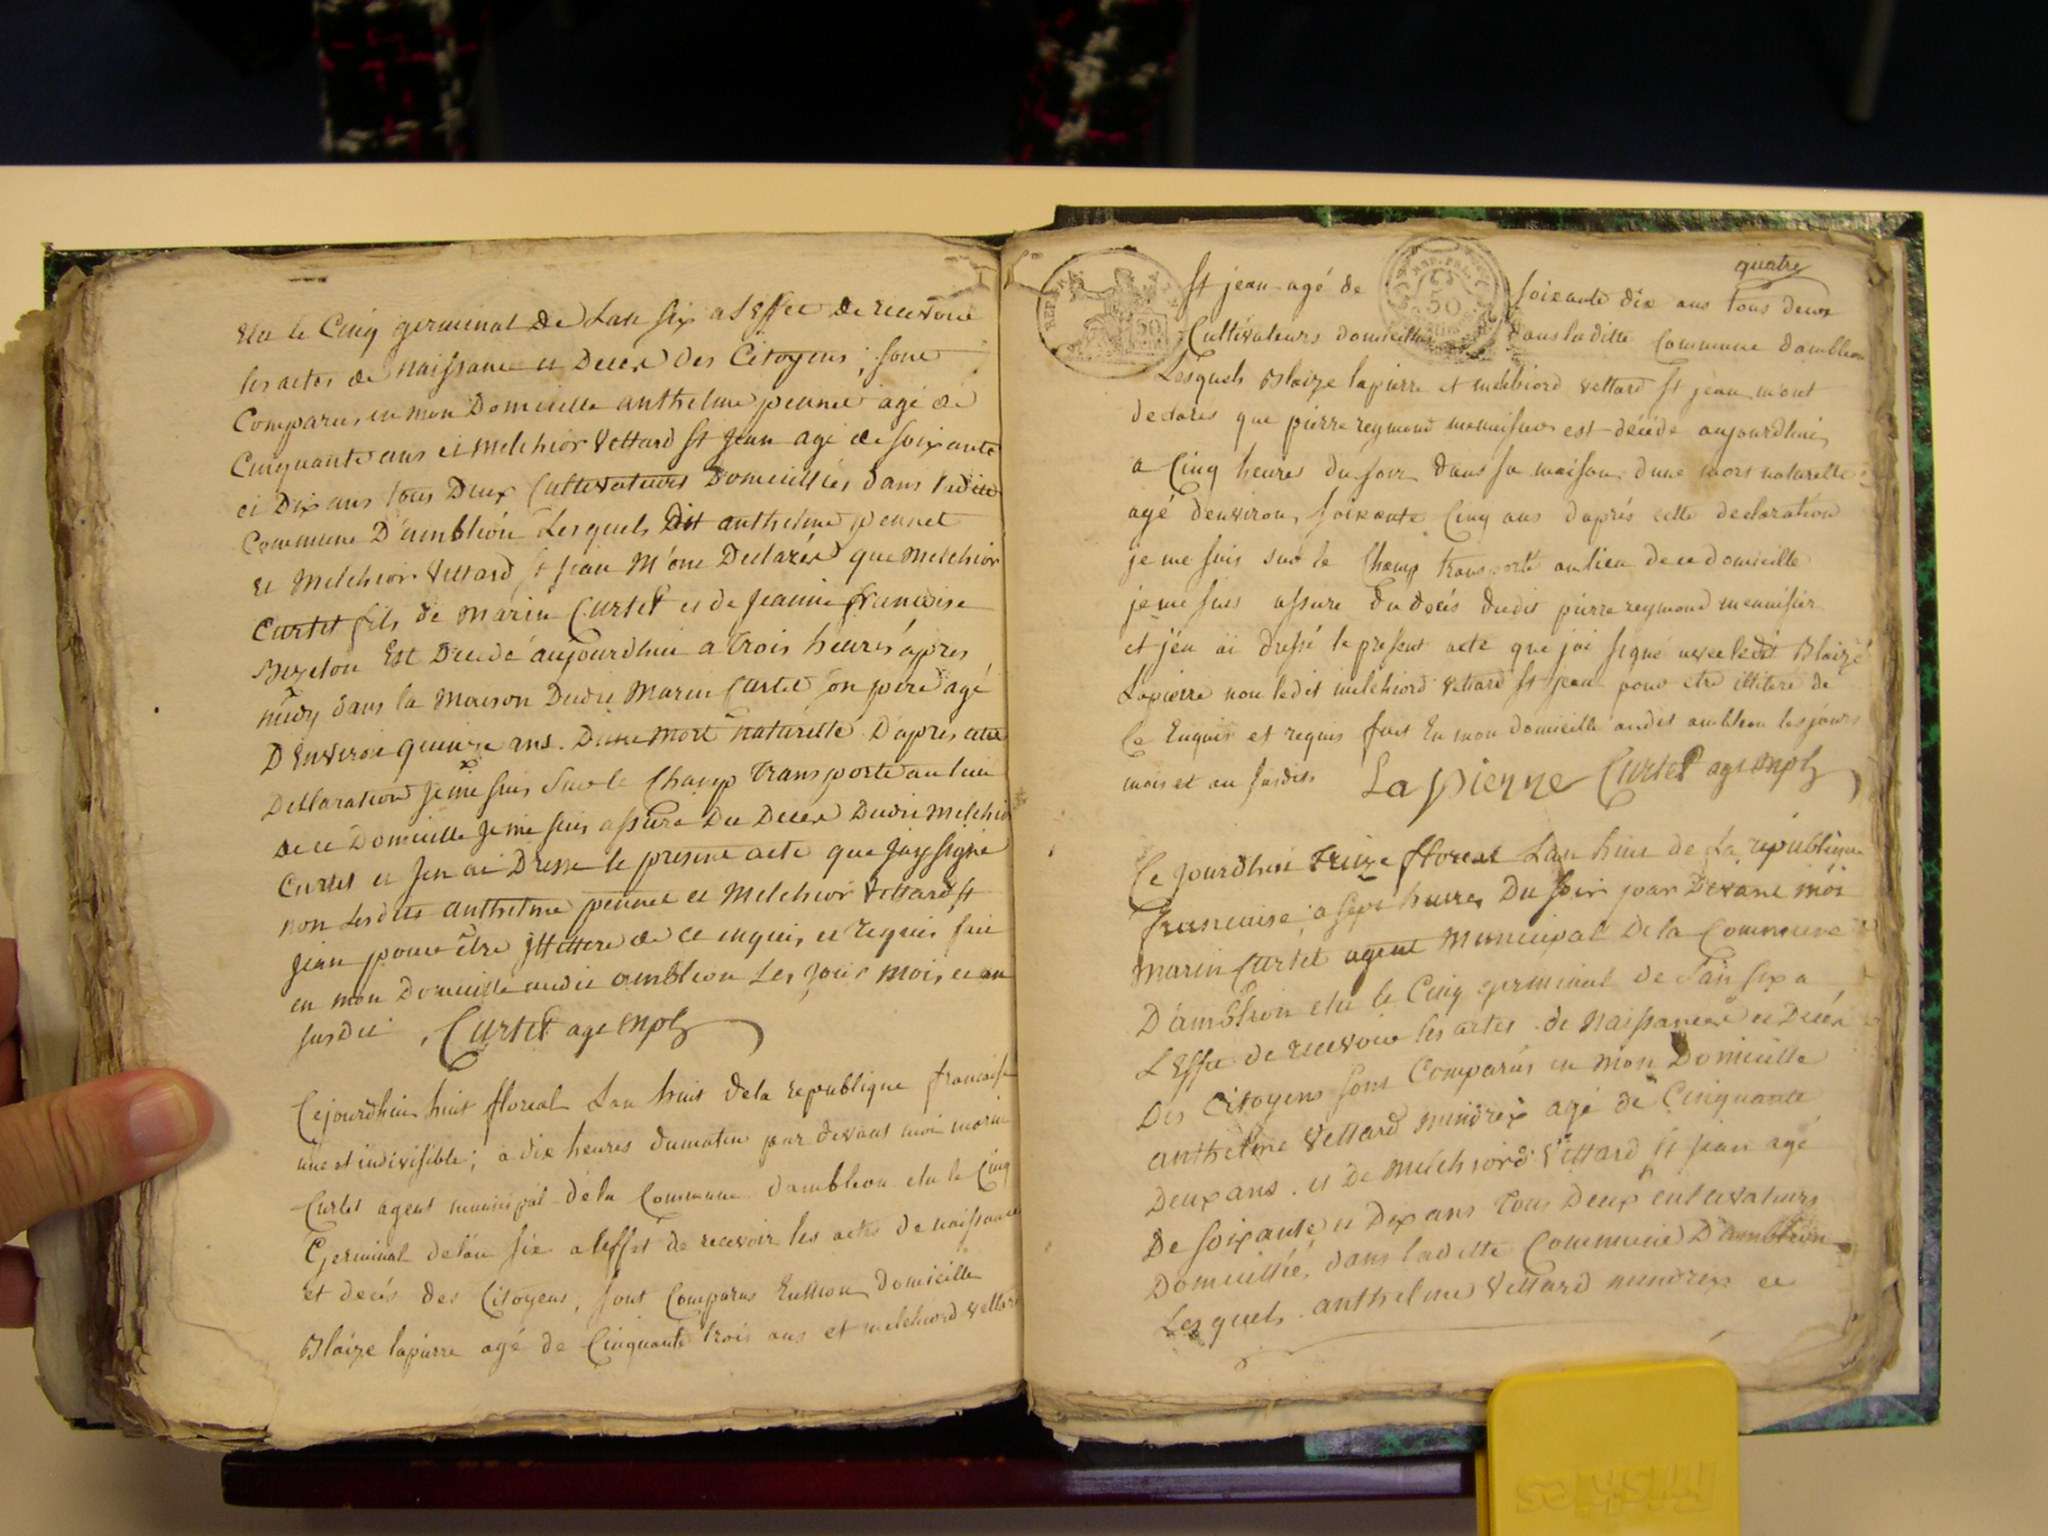 élu le Cinq germinal de Lan six a l'Effet de recevoir
les actes de naissance et Decex des Citoyens ; sont
Comparus en mon Domicille anthelme pennet agé de
Cinquante ans et melchior Vettard st jean agé de soixante
et Dix ans tous Deux Cultivateurs Domicilliés dans ladite
Commune D'ambléon Lesquels dit anthelme pennet
et Melchior Vettard st jean M'ont Declarés que Melchior
Curtet fils de Marin Curtet et de jeanne françoise
est Decedé aujourdhui a trois heures apres
midy dans la Maison Dudit Marin Curtet son pere agé
D'Environ quinze ans. D'une mort naturelle D'apres cette
Declaration je me suis sur le Champ transporté au lieu
de ce Domicille je me suis assuré Du Decex Dudit Melchior
Curtet et jen ai Dressé le present acte que jay signé
non Lesdits anthelme pennet et Melchior Vettard st
jean pour être jllittere de ce enquis et requis fait
en mon Domicille audit ambléon Les jour mois et an
susdit . Curtet age mpl
Cejourdhui huit floreal Lan huit dela republique francaise
une et indivisible ; a dix heures du matin par devant moi marin
Curtet agent municipal dela Commune dambléon elu le Cinq
Germinal delan six a leffet de recevoir les actes de naissance
et decés des Citoyens, sont Comparus En mon domicille
Blaize lapierre agé de Cinquante trois ans et melchiord vettard
quatre
REP. FRA.
50
st jean agé de soixante dix ans tous deux
Cultivateurs domicilliés dans la ditte Commune dambléon
Lesquels Blaize lapierre et melchiord vettard st jean mont
declarés que pierre reymond menuisier est décédé aujourdhui
a Cinq heures du soir dans sa maison dune mort naturelle
agé denviron soixante Cinq ans daprés cette declaration
je me suis sur le Champ transporté au lieu de ce domicille
je me suis assuré du decés dudit pierre reymond menuisier
et jén ai dressé le present acte que jai signé avec ledit Blaize
Lapierre non ledit melchiord vettard st jean pour etre illitéré de
Ce Enquis et requis fait En mon domicille audit ambléon les jours
mois et an susdits LapierrE Curtet age mpl
Ce jourdhui treize floreal Lan huit de La république
francaise ; a sept heures Du soir par Devant moi
Marin Curtet agent Municipal De la Commune
D'ambléon elu le Cinq germinal de l'an six a
L'Effet de recevoir les actes de Naissances et Decex
Des Citoyens sont Comparus en mon Domicille
anthelme Vettard mindrex agé de Cinquante
Deux ans . et de Melchiord Vettard st jean agé
De soixante et Dix ans tous Deux cultivateurs
Domicilliés dans laditte Commune D'ambléon
Lesquels anthelme Vettard mindrex et